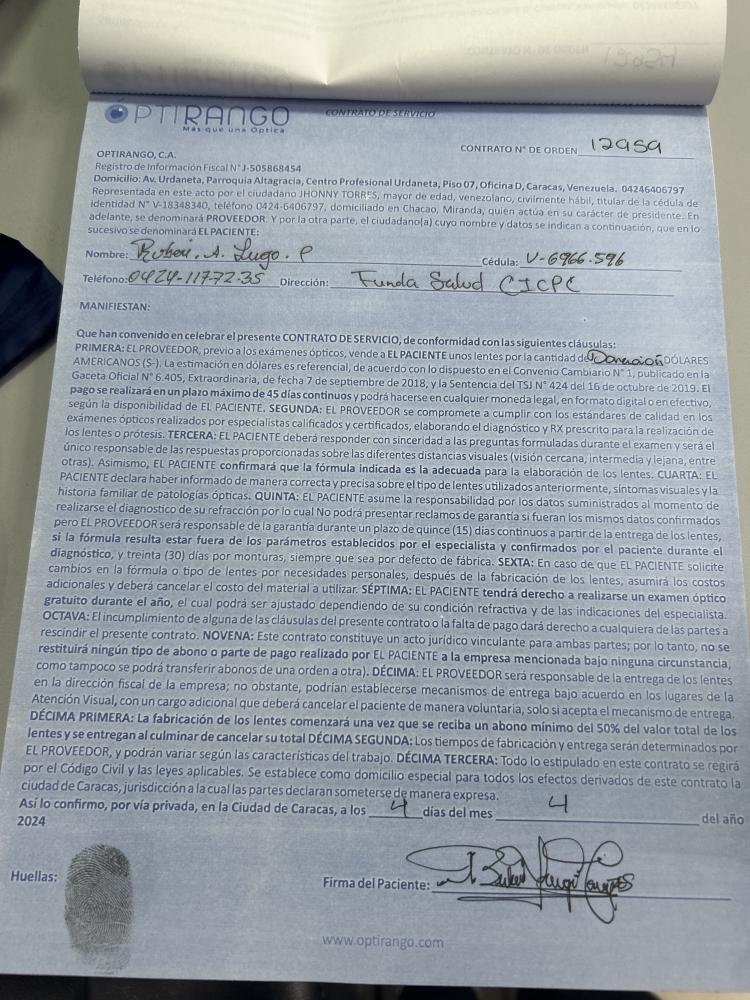 CONTRATO N° DE ORDEN
ÓPTIRANGO
Más que una Óptica
CONTRATO DE SERVICIO
CONTRATO N° DE ORDEN 12959
OPTIRANGO, C.A.
Registro de Información Fiscal N° J-505868454
Domicilio: Av. Urdaneta, Parroquia Altagracia, Centro Profesional Urdaneta, Piso 07, Oficina D, Caracas, Venezuela. 04246406797
Representada en este acto por el ciudadano JHONNY TORRES, mayor de edad, venezolano, civilmente hábil, titular de la cédula de
identidad N° V-18348340, teléfono 0424-6406797, domiciliado en Chacao, Miranda, quien actúa en su carácter de presidente. En
adelante, se denominará PROVEEDOR. Y por la otra parte, el ciudadano(a) cuyo nombre y datos se indican a continuación, que en lo
sucesivo se denominará EL PACIENTE:
Nombre: Ruben. A. Lugo. P Cédula: V-6966.596
Teléfono: 0424-1177235 Dirección: Funda Salud CICPC
MANIFIESTAN:
Que han convenido en celebrar el presente CONTRATO DE SERVICIO, de conformidad con las siguientes cláusulas:
PRIMERA: EL PROVEEDOR, previo a los exámenes ópticos, vende a EL PACIENTE unos lentes por la cantidad de Donación DÓLARES
AMERICANOS ($-). La estimación en dólares es referencial, de acuerdo con lo dispuesto en el Convenio Cambiario N° 1, publicado en la
Gaceta Oficial N° 6.405, Extraordinaria, de fecha 7 de septiembre de 2018, y la Sentencia del TSJ N° 424 del 16 de octubre de 2019. El
pago se realizará en un plazo máximo de 45 días continuos y podrá hacerse en cualquier moneda legal, en formato digital o en efectivo,
según la disponibilidad de EL PACIENTE. SEGUNDA: EL PROVEEDOR se compromete a cumplir con los estándares de calidad en los
exámenes ópticos realizados por especialistas calificados y certificados, elaborando el diagnóstico y RX prescrito para la realización de
los lentes o prótesis. TERCERA: EL PACIENTE deberá responder con sinceridad a las preguntas formuladas durante el examen y será el
único responsable de las respuestas proporcionadas sobre las diferentes distancias visuales (visión cercana, intermedia y lejana, entre
otras). Asimismo, EL PACIENTE confirmará que la fórmula indicada es la adecuada para la elaboración de los lentes. CUARTA: EL
PACIENTE declara haber informado de manera correcta y precisa sobre el tipo de lentes utilizados anteriormente, síntomas visuales y la
historia familiar de patologías ópticas. QUINTA: EL PACIENTE asume la responsabilidad por los datos suministrados al momento de
realizarse el diagnóstico de su refracción por lo cual No podrá presentar reclamos de garantía si fueran los mismos datos confirmados
pero EL PROVEEDOR será responsable de la garantía durante un plazo de quince (15) días continuos a partir de la entrega de los lentes,
si la fórmula resulta estar fuera de los parámetros establecidos por el especialista y confirmados por el paciente durante el
diagnóstico, y treinta (30) días por monturas, siempre que sea por defecto de fábrica. SEXTA: En caso de que EL PACIENTE solicite
cambios en la fórmula o tipo de lentes por necesidades personales, después de la fabricación de los lentes, asumirá los costos
adicionales y deberá cancelar el costo del material a utilizar. SÉPTIMA: EL PACIENTE tendrá derecho a realizarse un examen óptico
gratuito durante el año, el cual podrá ser ajustado dependiendo de su condición refractiva y de las indicaciones del especialista.
OCTAVA: El incumplimiento de alguna de las cláusulas del presente contrato o la falta de pago dará derecho a cualquiera de las partes a
rescindir el presente contrato. NOVENA: Este contrato constituye un acto jurídico vinculante para ambas partes; por lo tanto, no se
restituirá ningún tipo de abono o parte de pago realizado por EL PACIENTE a la empresa mencionada bajo ninguna circunstancia,
como tampoco se podrá transferir abonos de una orden a otra). DÉCIMA: EL PROVEEDOR será responsable de la entrega de los lentes
en la dirección fiscal de la empresa; no obstante, podrían establecerse mecanismos de entrega bajo acuerdo en los lugares de la
Atención Visual, con un cargo adicional que deberá cancelar el paciente de manera voluntaria, solo si acepta el mecanismo de entrega.
DÉCIMA PRIMERA: La fabricación de los lentes comenzará una vez que se reciba un abono mínimo del 50% del valor total de los
lentes y se entregan al culminar de cancelar su total DÉCIMA SEGUNDA: Los tiempos de fabricación y entrega serán determinados por
EL PROVEEDOR, y podrán variar según las características del trabajo. DÉCIMA TERCERA: Todo lo estipulado en este contrato se regirá
por el Código Civil y las leyes aplicables. Se establece como domicilio especial para todos los efectos derivados de este contrato la
ciudad de Caracas, jurisdicción a la cual las partes declaran someterse de manera expresa.
Así lo confirmo, por vía privada, en la Ciudad de Caracas, a los 4 días del mes 4 del año
2024
Huellas:
Firma del Paciente:
www.optirango.com